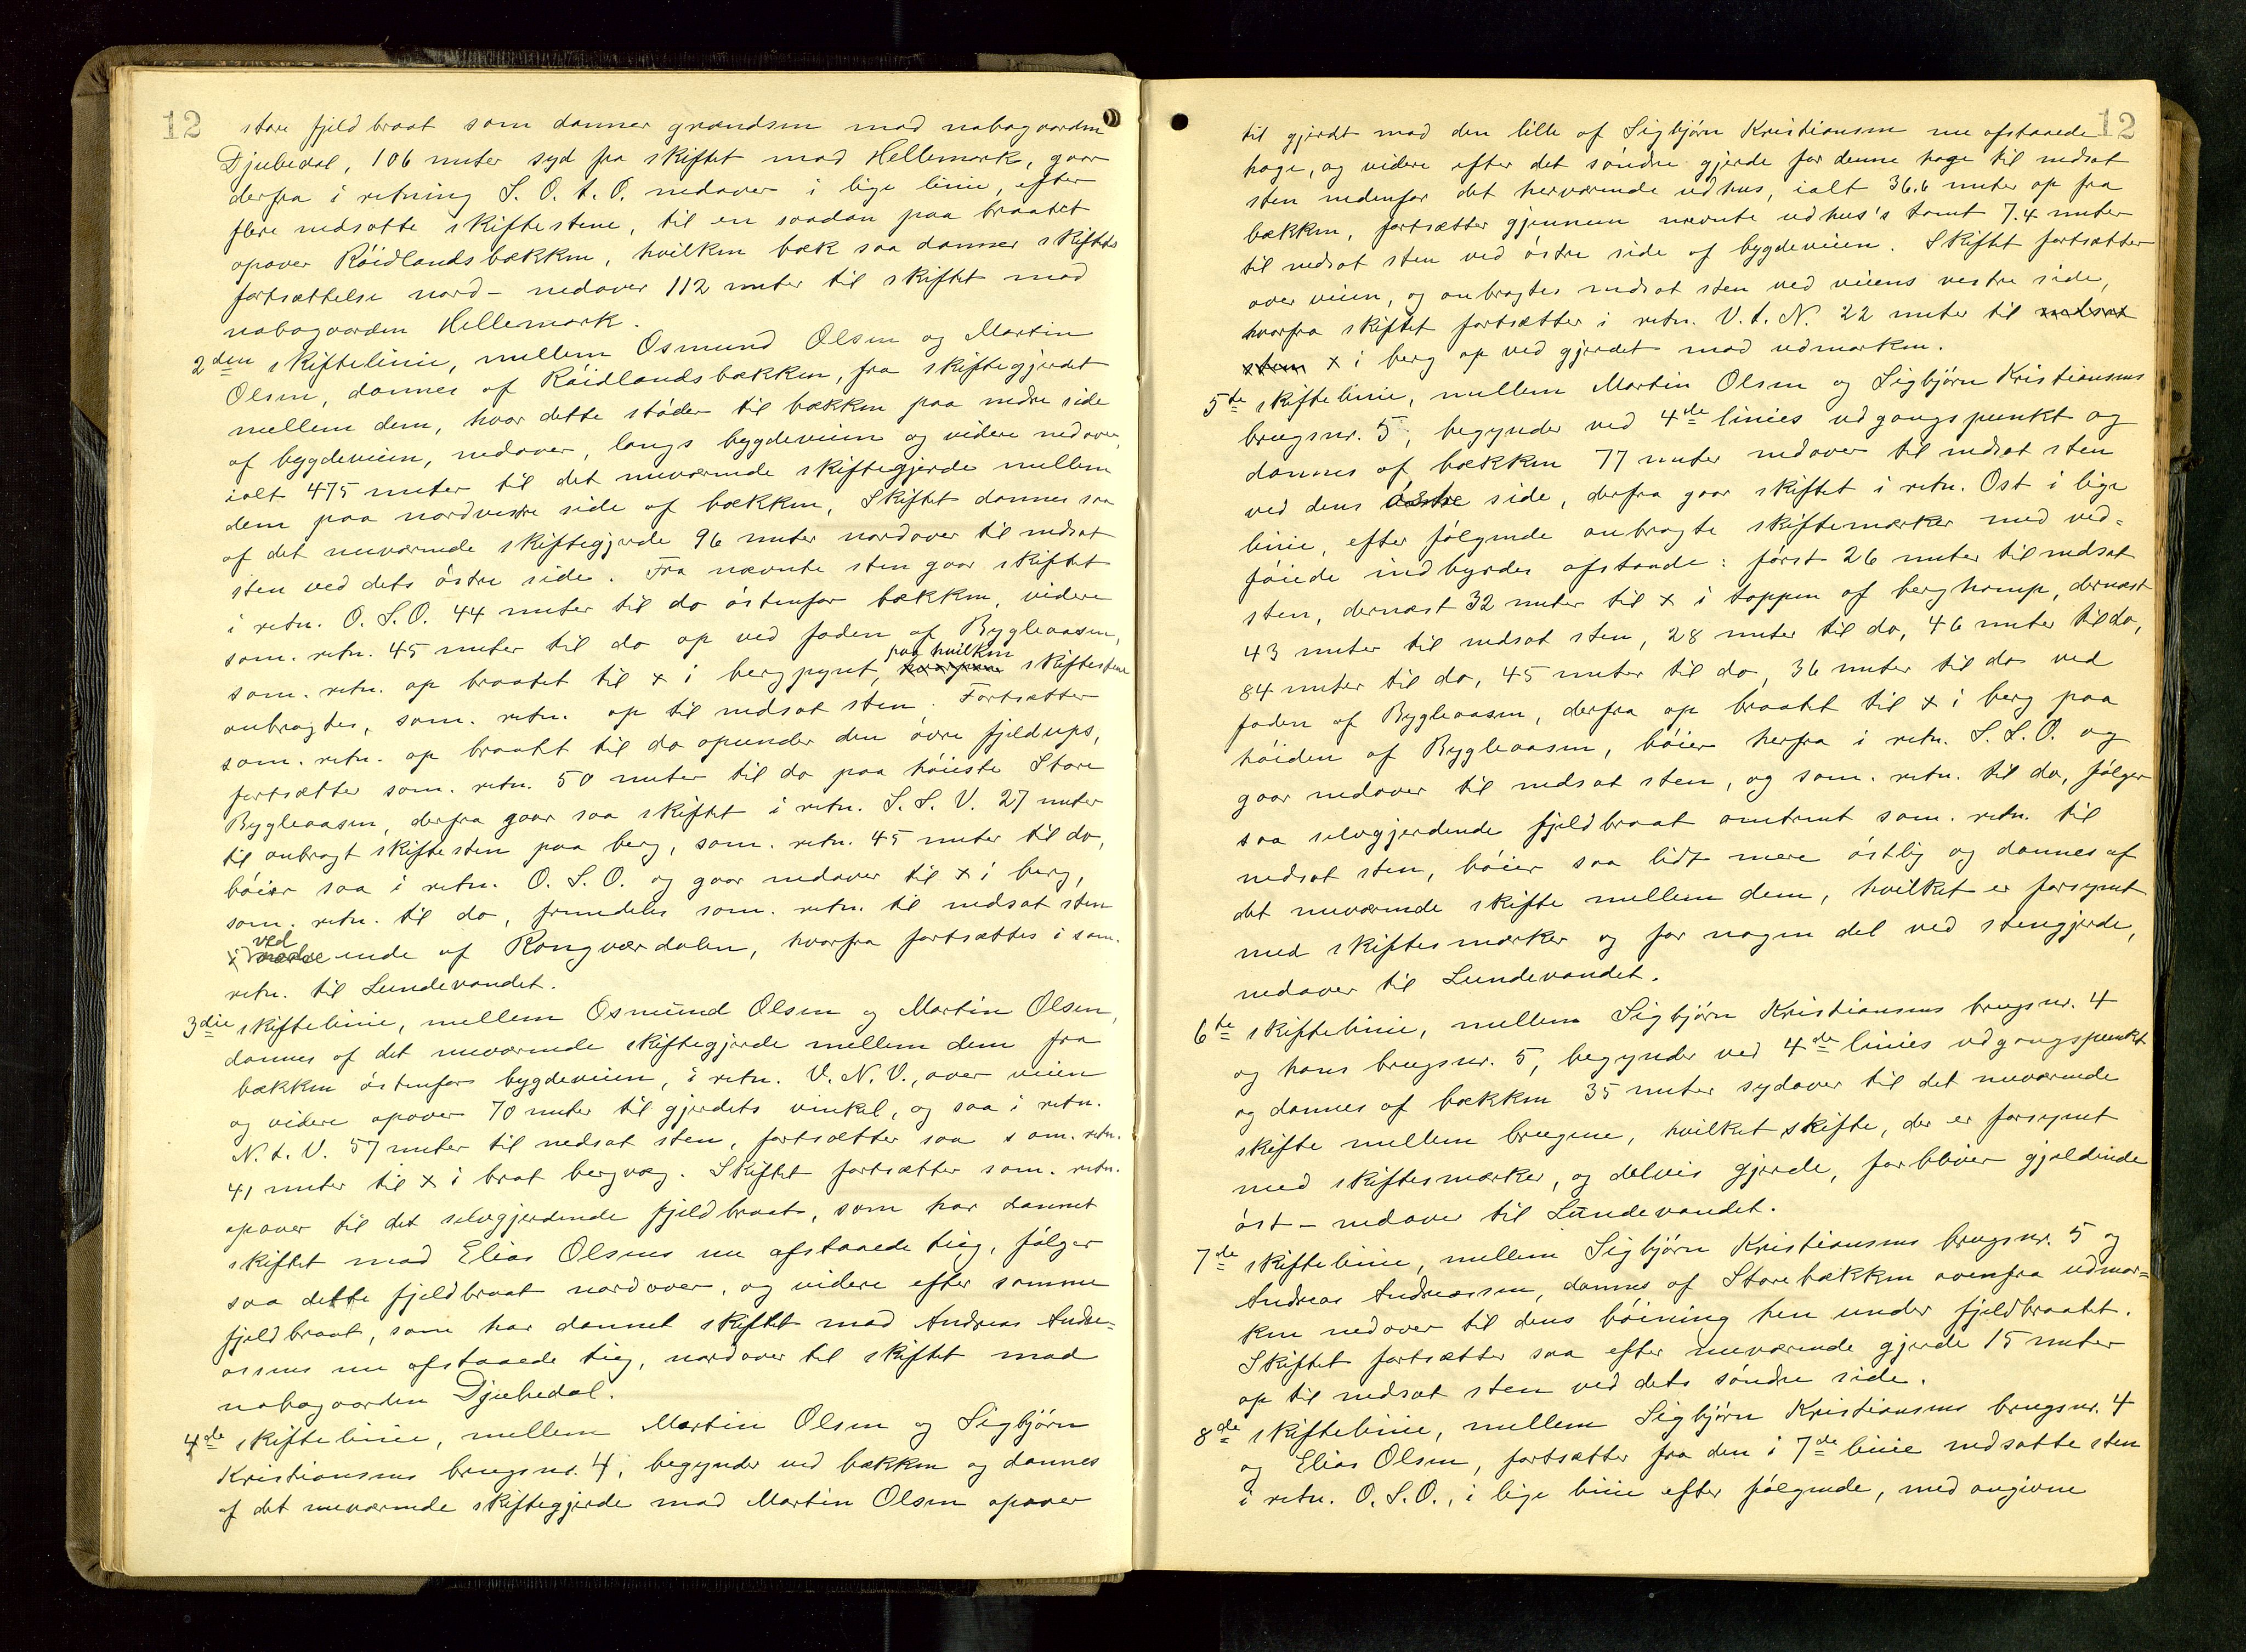 12
store fjeldbraat som danner grændsen mod nabogaarden
Djubedal, 106 meter syd fra skiftet mod Hellemark, gaar
derfra i retning S. O. t. O. nedover i lige linie, efter
flere nedsatte skiftestene, til en saadan paa braatet
opover Röidlandsbækken, hvilken bæk saa danner skiftets
fortsættelse nord- nedover 112 meter til skiftet mod
nabogaarden Hellemark.
2den skiftelinie, mellem Osmund Olsen og Martin
Olsen, dannes af Röidlandsbækken, fra skiftegjerdet
mellem dem, hvor dette stöder til bækken paa nedre side
af bygdeveien, nedover, langs bygdeveien og videre nedover,
ialt 475 meter til det nuværende skiftegjerde mellem
dem paa nordvestre side af bækken, Skiftet dannes saa
af det nuværende skiftegjerde 96 meter nordover til nedsat
sten ved dets östre side. Fra nævnte sten gaar skiftet
i retn. O. S. O. 44 meter til do östenfor bækken, videre
sam. retn. 45 meter til do op ved foden af Bygleaasen,
paa hvilken
sam. retn. op braatet til x i bergpynt, skiftesten
anbragtes, sam. retn. op til nedsat sten. Fortsætter
sam. retn. op braatet til do opunder den övre fjeldups,
fortsætter sam. retn. 50 meter til do paa höieste Store
Bygleaasen, derfra gaar saa skiftet i retn. S. S. V. 27 meter
til anbragt skiftesten paa berg, sam. retn. 45 meter til do,
böier saa i retn. O. S. O. og gaar nedover til x i berg,
sam. retn. til do, fremdeles sam. retn. til nedsat sten
ved
i nedre ende af Rongværdalen, hvorfra fortsættes i sam.
retn. til Lundevandet.
3die skiftelinie, mellem Osmund Olsen og Martin Olsen,
dannes af det nuværende skiftegjerde mellem dem fra
bækken östenfor bygdeveien, i retn. V. N. V., over veien
og videre opover 70 meter til gjerdets vinkel, og saa i retn.
N. t. V. 57 meter til nedsat sten, fortsætter saa sam. retn.
41 meter til x i brat bergvæg. Skiftet fortsætter sam. retn.
opover til det selvgjerdende fjeldbraat, som har dannet
skiftet mod Elias Olsens nu afstaaede teig, fölger
saa dette fjeldbraat nordover, og videre efter samme
fjeldbraat, som har dannet skiftet mod Andreas Andre-
assens nu afstaaede teig, nordover til skiftet mod
nabogaarden Djubedal.
4de skiftelinie, mellem Martin Olsen og Sigbjörn
Kristiansens brugsnr. 4, begynder ved bækken og dannes
af det nuværende skiftegjerde mod Martin Olsen opover
12
til gjerdet mod den lille af Sigbjörn Kristiansen nu afstaaede
hage, og videre efter det söndre gjerde for denne hage til nedsat
sten nedenfor det herværende udhus, ialt 36.6 meter op fra
bækken, fortsætter gjennem nævnte udhus's tomt 7.4 meter
til nedsat sten ved östre side af bygdeveien. Skiftet fortsætter
over veien, og anbragtes nedsat sten ved veiens vestre side,
hvorfra skiftet fortsætter i retn. V. t. N. 22 meter til nedsat
sten x i berg op ved gjerdet mod udmarken.
5te skiftelinie, mellem Martin Olsen og Sigbjörn Kristiansens
brugsnr. 5, begynder ved 4de linies udgangspunkt og
dannes af bækken 77 meter nedover til nedsat sten
ved dens östre side, derfra gaar skiftet i retn. Ost i lige
linie, efter fölgende anbragte skiftemærker med ved-
föiede indbyrdes afstande: först 26 meter til nedsat
sten, dernæst 32 meter til x i toppen af berghamp, dernæst
43 meter til nedsat sten, 28 meter til do, 46 meter til do,
84 meter til do, 45 meter til do, 36 meter til do ved
foden af Bygleaasen, derfra op braatet til x i berg paa
höiden af Bygleaasen, böier herfra i retn. S. S. O. og
gaar nedover til nedsat sten, og sam. retn. til do, fölger
saa selvgjerdende fjeldbraat omtrent sam. retn. til
nedsat sten, böier saa lidt mere östlig og dannes af
det nuværende skifte mellem dem, hvilket er forsynet
med skiftesmærker og for nogen del ved stengjerde,
nedover til Lundevandet.
6te skiftelinie, mellem Sigbjörn Kristiansens brugsnr. 4
og hans brugsnr. 5, begynder ved 4de linies udgangspunkt
og dannes af bækken 35 meter sydover til det nuværende
skifte mellem brugene, hvilket skifte, der er forsynet
med skiftesmærker, og delvis gjerde, forbliver gjeldende
öst- nedover til Lundevandet.
7de skiftelinie, mellem Sigbjörn Kristiansens brugsnr. 5 og
Andreas Andreassen, dannes af Storebækken ovenfra udmar-
ken nedover til dens böining hen under fjeldbraatet.
Skiftet fortsætter saa efter nuværende gjerde 15 meter
op til nedsat sten ved dets söndre side.
8de skiftelinie, mellem Sigbjörn Kristiansens brugsnr. 4
og Elias Olsen, fortsætter fra den i 7de linie nedsatte sten
i retn. O. S. O., i lige linie efter fölgende, med angivne